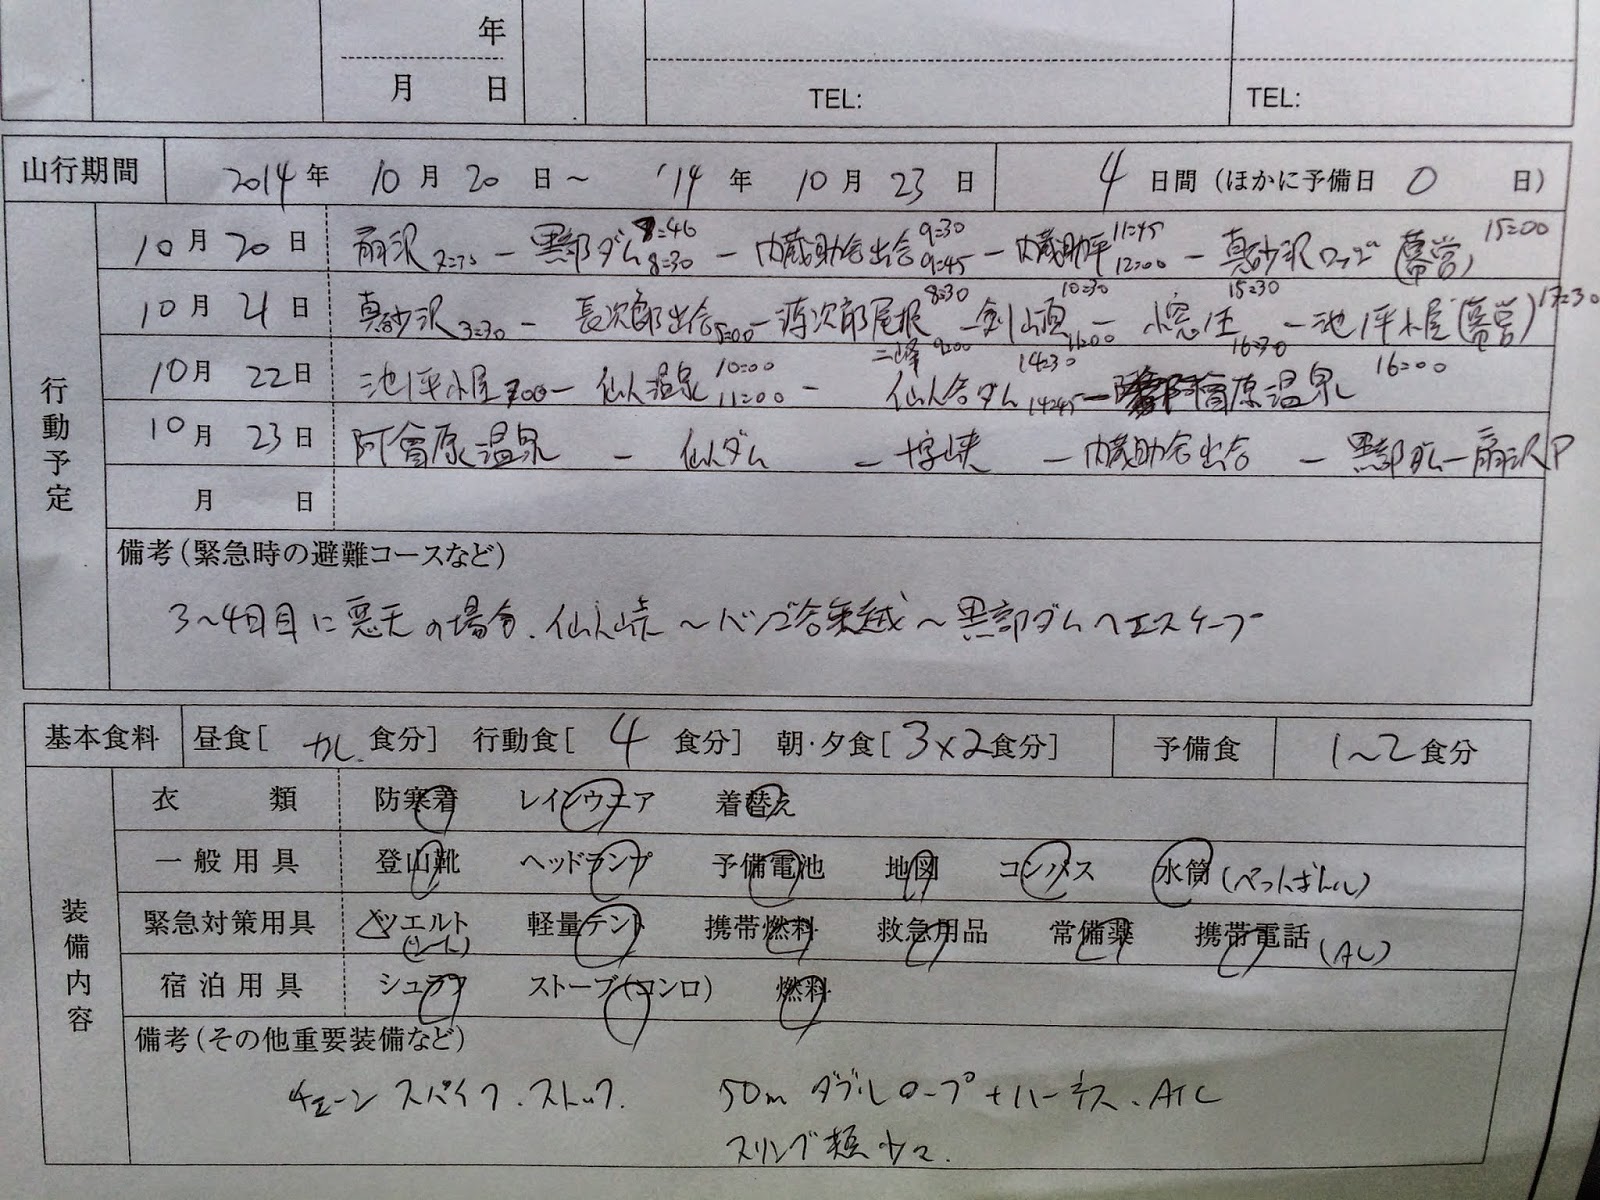 年
月 日 TEL: TEL:
山行期間 2014年 10月 20日～ '14年 10月 23日 4日間(ほかに予備日 0 日)
行動予定
10月 20日 扇沢 - 黒部ダム 8:30 - 内蔵助谷出合 9:30 9:45 - 内蔵助平 11:45 12:00 - 真砂沢ロッジ(幕営) 15:00
10月 21日 真砂沢 3:30 - 長次郎出合 5:00 - 源次郎尾根 二峰 8:30 9:00 - 剣山頂 10:30 11:00 - 小窓 15:30 16:30 - 池ノ平小屋(幕営) 17:30
10月 22日 池ノ平小屋 7:00 - 仙人温泉 10:00 11:00 - 仙人谷ダム 14:30 14:45 - 阿曽原温泉 16:00
10月 23日 阿曽原温泉 - 仙人ダム - 十字峡 - 内蔵助谷出合 - 黒部ダム - 扇沢P
月 日
備考(緊急時の避難コースなど)
3～4日目に悪天の場合、仙人峠～ハシゴ谷乗越～黒部ダムへエスケープ
基本食料 昼食[ ナシ 食分] 行動食[ 4 食分] 朝・夕食[ 3×2食分] 予備食 1～2食分
装備内容
衣類 防寒着 レインウエア 着替え
一般用具 登山靴 ヘッドランプ 予備電池 地図 コンパス 水筒(ぺっとぼとる)
緊急対策用具 ツエルト 軽量テント 携帯燃料 救急用品 常備薬 携帯電話(AU)
(ソール)
宿泊用具 シュラフ ストーブ(コンロ) 燃料
備考(その他重要装備など)
チェーンスパイク、ストック、 50m ダブルロープ+ハーネス、ATC
スリング類少々、